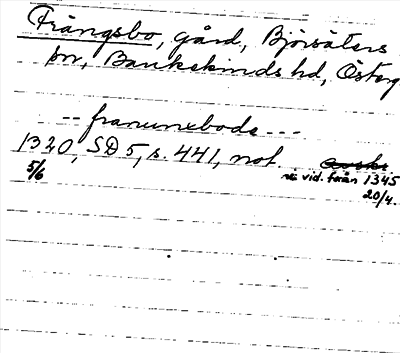 Frängsbo, gård, Björsäters
sn, Bankekinds hd, Österg
-- franunxebode ---
1320, SD 5, s. 441, not.
5/6
vid. från 1345
20/4.